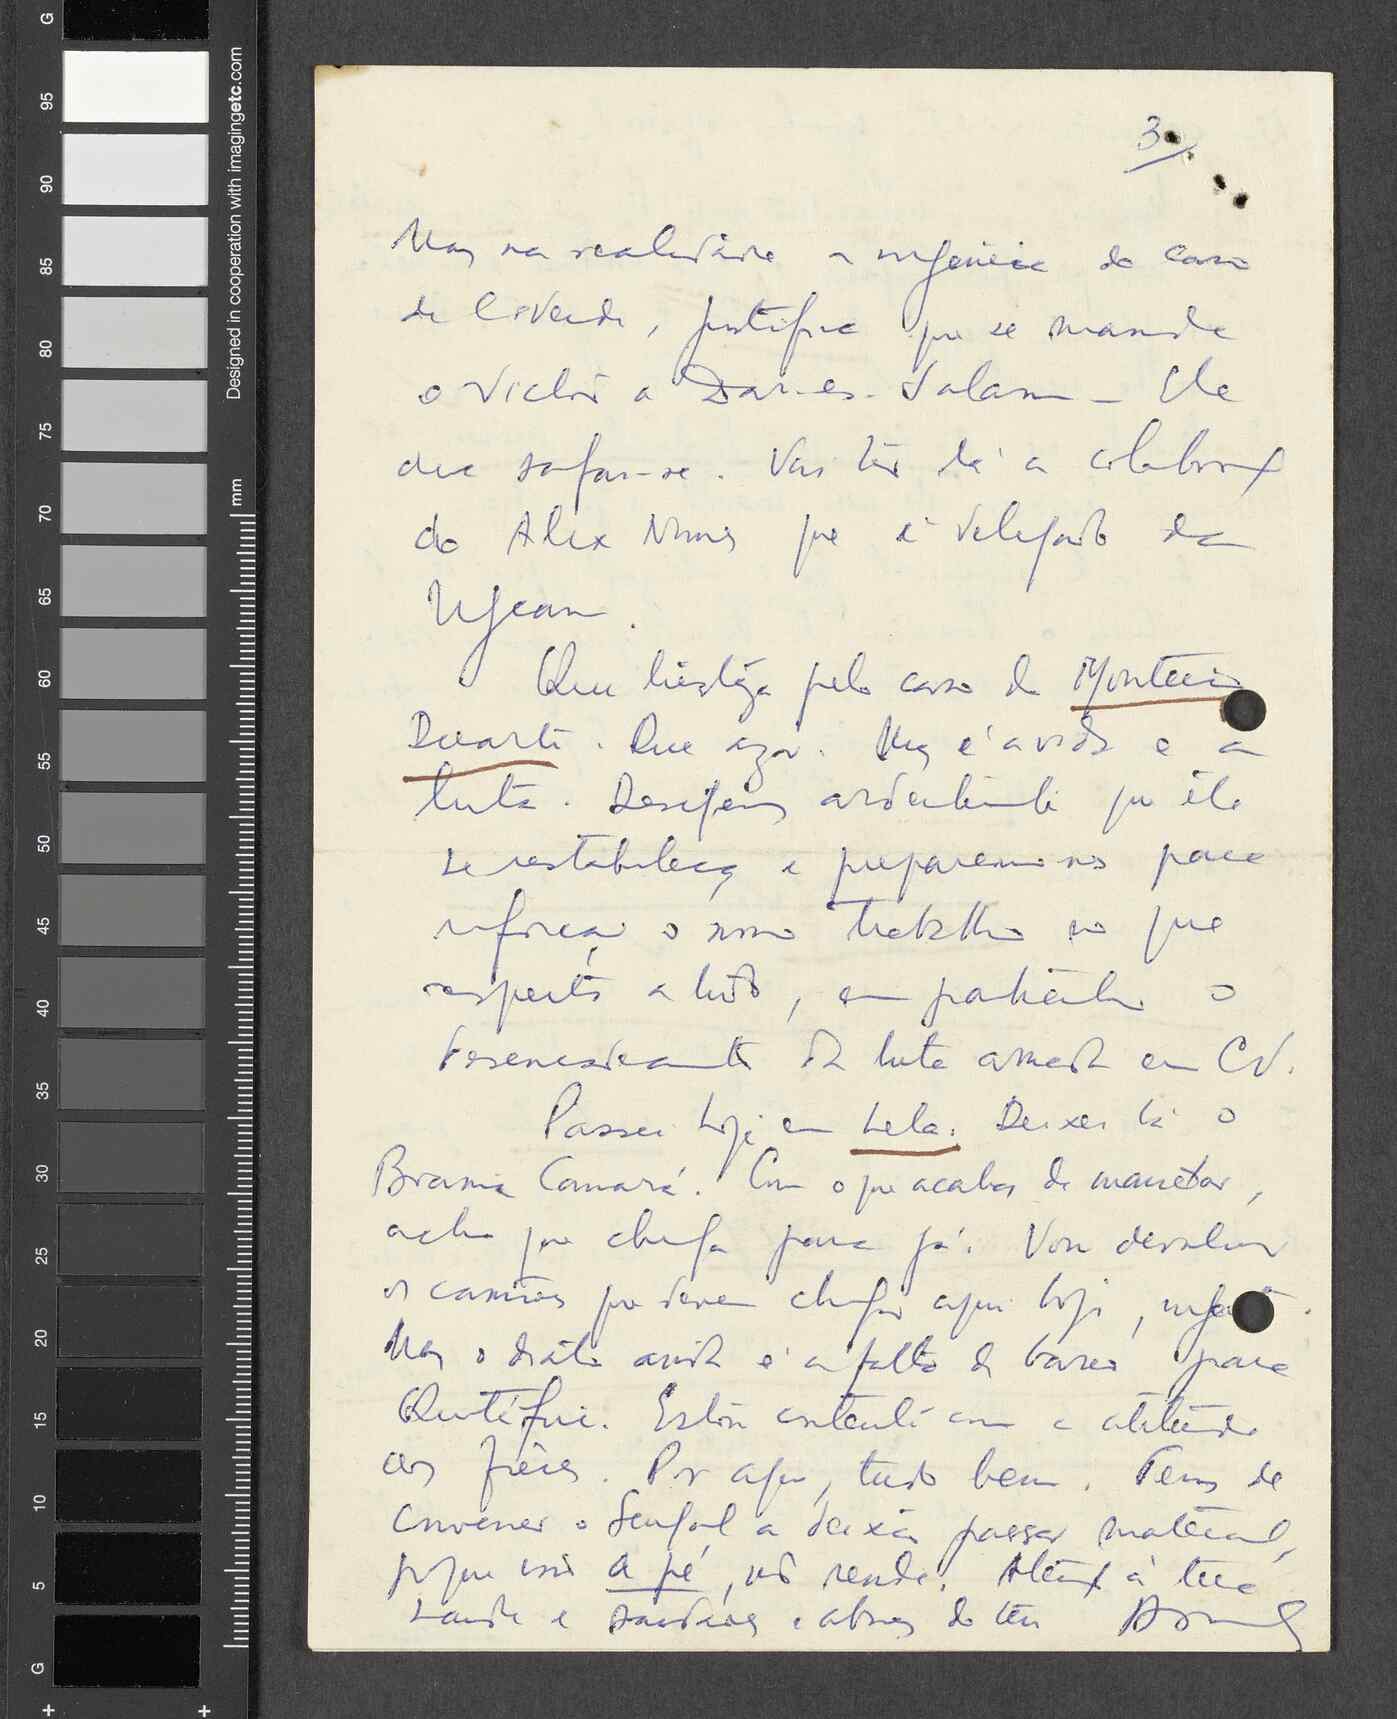 G
95
90
85
80
75
70
65
60
55
50
45
40
35
30
25
20
15
10
5
G
mm
Designed in cooperation with imagingetc.com
3.
Mas na realidade a urgência do caso
de C. Verde, justifica que se mande
o Victor a Dar-es-Salam – Ele
que safar-se. Vai ter lá a colabor.
do Alex Nunes que é delegado da
Ugean.
Que tristeza pelo caso do Monteiro
Duarte. Que azar. Mas é a vida e a
luta. Desejemos ardentemente que ele
se restabeleça e preparemo-nos para
reforçar o nosso trabalho no que
respeita a tudo, em particular o
desencadeamento da luta armada em CV.
Passei hoje em Lela. Deixei lá o
Braima Camará. Com o que acabas de mandar,
acho que chega para já. Vou devolver
os camiões que devem chegar aqui hoje,
Mas o diabo ainda é a falta de barco para
Quitáfine. Estou contente com a atitude
dos frères. Por aqui, tudo bem. Temos de
convencer o Senegal a deixar passar material,
porque isso a pé, não rende. Atenção à tua
saúde e saudades e abraços do teu